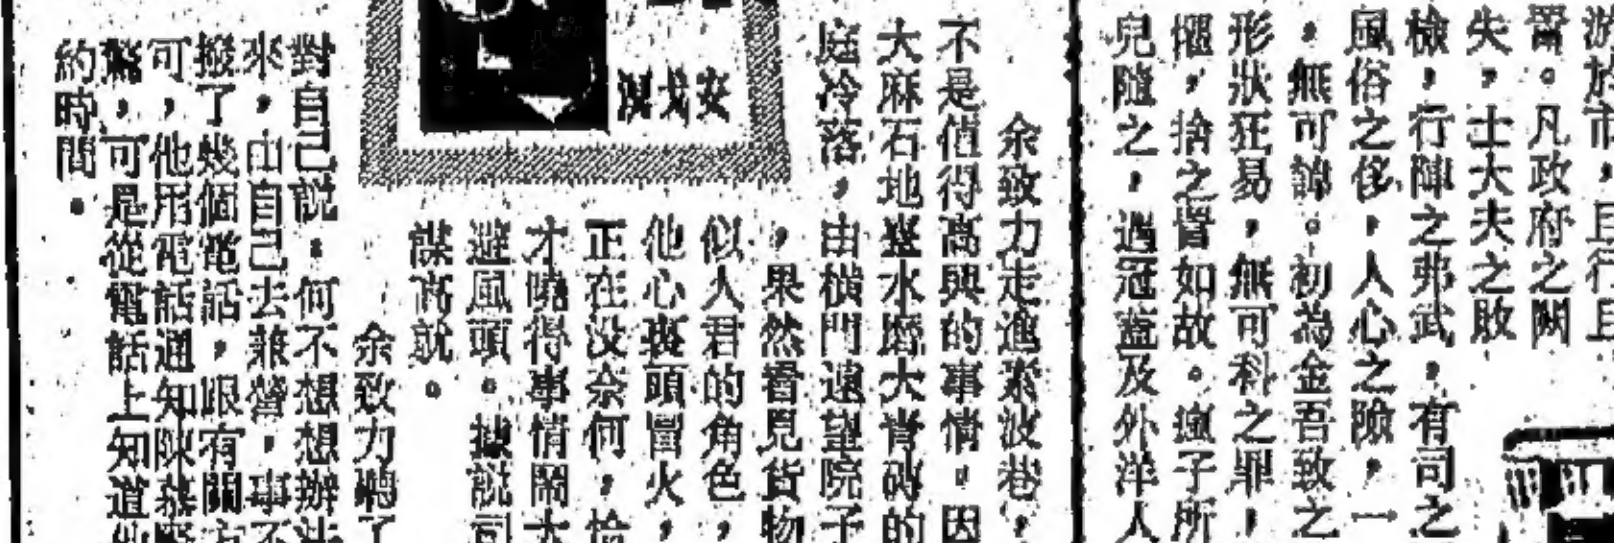 游於市,且行且
詈。凡政府之闕
失,士大夫之敗
檢,行陣之弗武,有司之
風俗之侈,人心之險,一
,無可諱。初為金吾致之
形狀狂易,無可科之罪,
擢,捨之詈如故。瘋子所
兒隨之,過冠蓋及外洋人
余致力走進素波巷,
不是值得高興的事情。因
大麻石地臺水磨大青磚的
庭冷落,由橫門遠望院子
,果然看見貨物
似人君的角色,
他心裏頭冒火,
正在没奈何,恰
才曉得事情鬧大
避風頭。據説司
謀高就。
安戈
余致力聽了
對自己説,何不想想辦法
來,由自己去兼營,事不
撥了幾個電話,眼有關方
可,他用電話通知陳
,可是從電話上知道他
約時間。